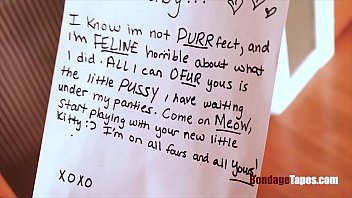 I know im not PURRfect, and
im FELINE horrible about what
I did. ALL I can OFUR yous is
the little PUSSY I have waiting
under my panties. Come on MEOW,
start playing with your new little
Kitty :) I'm on all furs and all yours!
XOXO
BondageTapes.com